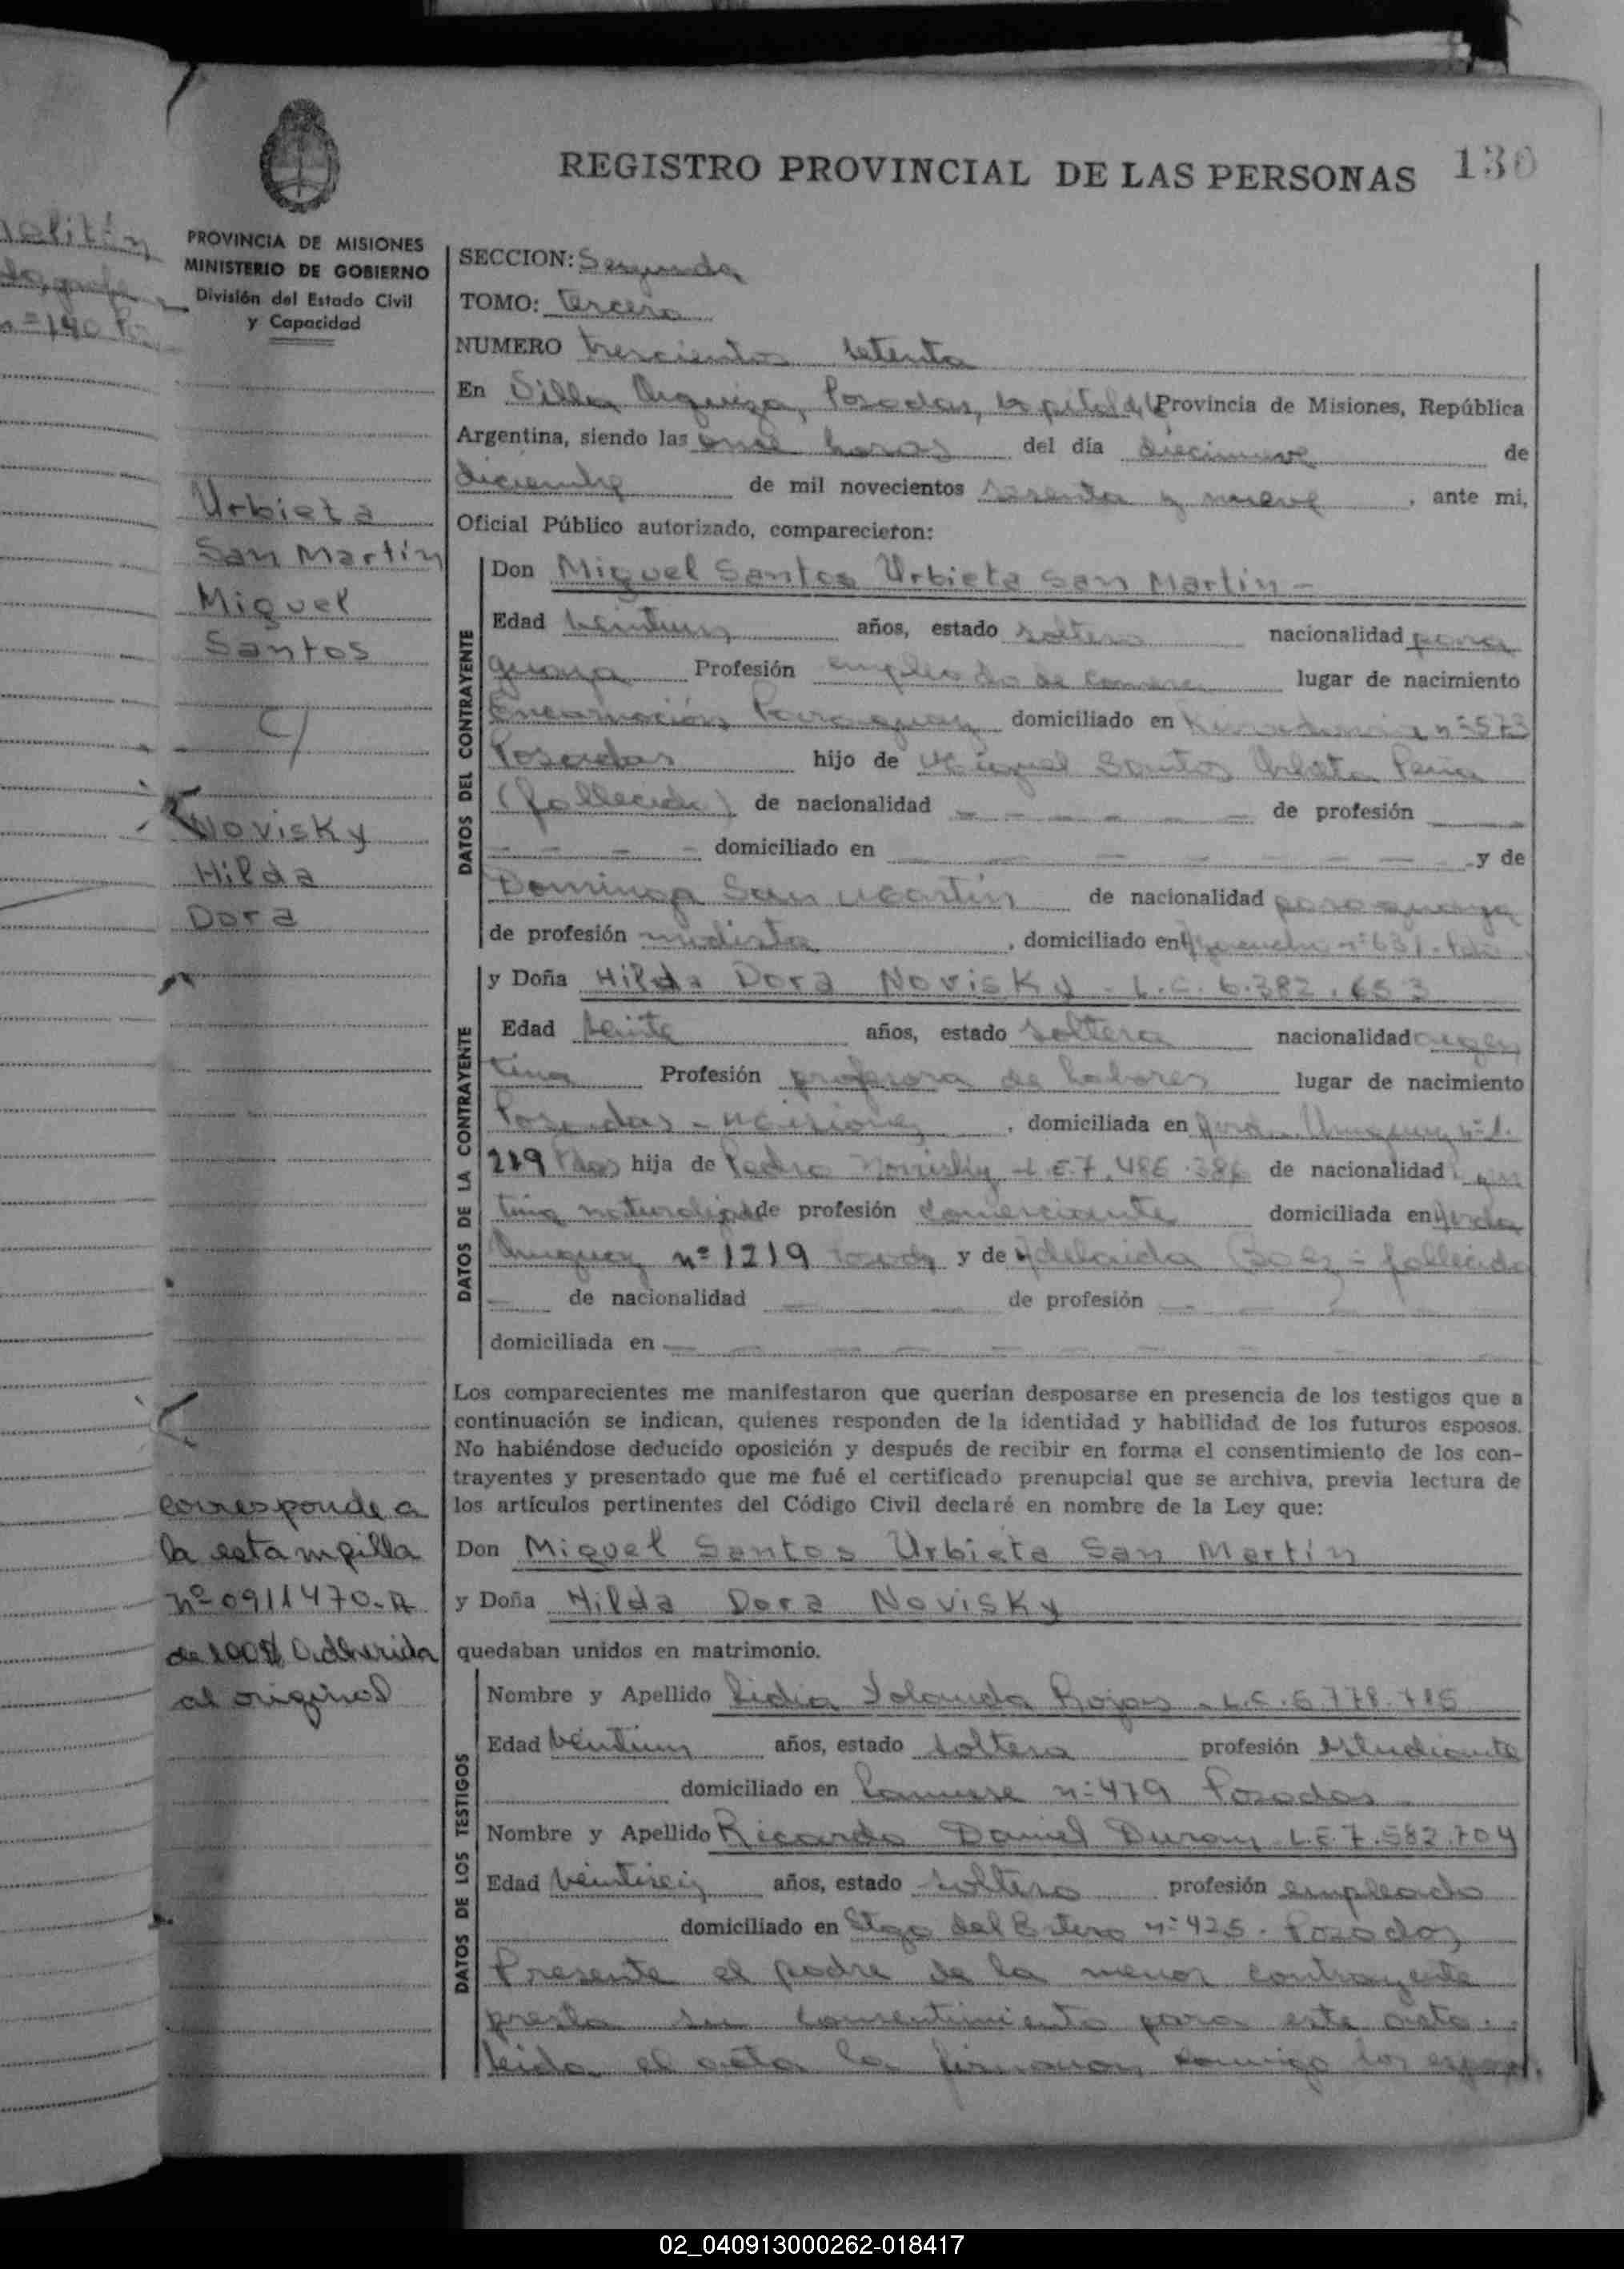 REGISTRO PROVINCIAL DE LAS PERSONAS 130
PROVINCIA DE MISIONES
MINISTERIO DE GOBIERNO
División del Estado Civil
y Capacidad
Urbieta
San Martín
Miguel
Santos
c/
Novisky
Hilda
Dora
corresponde a
la estampilla
nº 0911470-A
de 100$ Adherida
al original
SECCION: Segunda
TOMO: tercero
NUMERO trescientos setenta
En Villa Urquiza, Posadas, capital de la Provincia de Misiones, República
Argentina, siendo las once horas del día diecinueve de
diciembre de mil novecientos sesenta y nueve, ante mi,
Oficial Público autorizado, comparecieron:
DATOS DEL CONTRAYENTE
Don Miguel Santos Urbieta San Martín -
Edad veintiun años, estado soltero nacionalidad para
guaya Profesión empleado de comercio lugar de nacimiento
Encarnación Paraguay domiciliado en nº 573
Posadas hijo de Miguel Santos Urbieta Peña
(fallecido) de nacionalidad - - - - - - de profesión - -
- - - - domiciliado en - - - - - - y de
Dominga San Martín de nacionalidad paraguaya
de profesión modista, domiciliado en nº 631
DATOS DE LA CONTRAYENTE
y Doña Hilda Dora Novisky - L.C. 6.382.653
Edad veinte años, estado soltera nacionalidad argen
tina Profesión profesora de labores lugar de nacimiento
Posadas - Misiones, domiciliada en Avda. Uruguay nº 1.
219 Pdas hija de Pedro Novisky L.E. 7.486.386 de nacionalidad argen
tina naturalizado de profesión comerciante domiciliada en Avda
Uruguay nº 1219 Posadas y de Adelaida Baez - fallecida
- de nacionalidad - - - de profesión - - - -
domiciliada en - - - - - - - - -
Los comparecientes me manifestaron que querían desposarse en presencia de los testigos que a
continuación se indican, quienes responden de la identidad y habilidad de los futuros esposos.
No habiéndose deducido oposición y después de recibir en forma el consentimiento de los con-
trayentes y presentado que me fué el certificado prenupcial que se archiva, previa lectura de
los artículos pertinentes del Código Civil declaré en nombre de la Ley que:
Don Miguel Santos Urbieta San Martín
y Doña Hilda Dora Novisky
quedaban unidos en matrimonio.
DATOS DE LOS TESTIGOS
Nombre y Apellido Lidia Yolanda Rojas - L.C. 6.778.785
Edad veintiun años, estado soltera profesión estudiante
domiciliado en Lanusse nº 479 Posadas
Nombre y Apellido Ricardo Daniel Duran L.E. 7.582.704
Edad veintiseis años, estado soltero profesión empleado
domiciliado en Stgo del Estero nº 425 - Posadas
Presente el padre de la menor contrayente
presta su consentimiento para este acto.
leida el acta la firmaron conmigo los esposos.
02_040913000262-018417